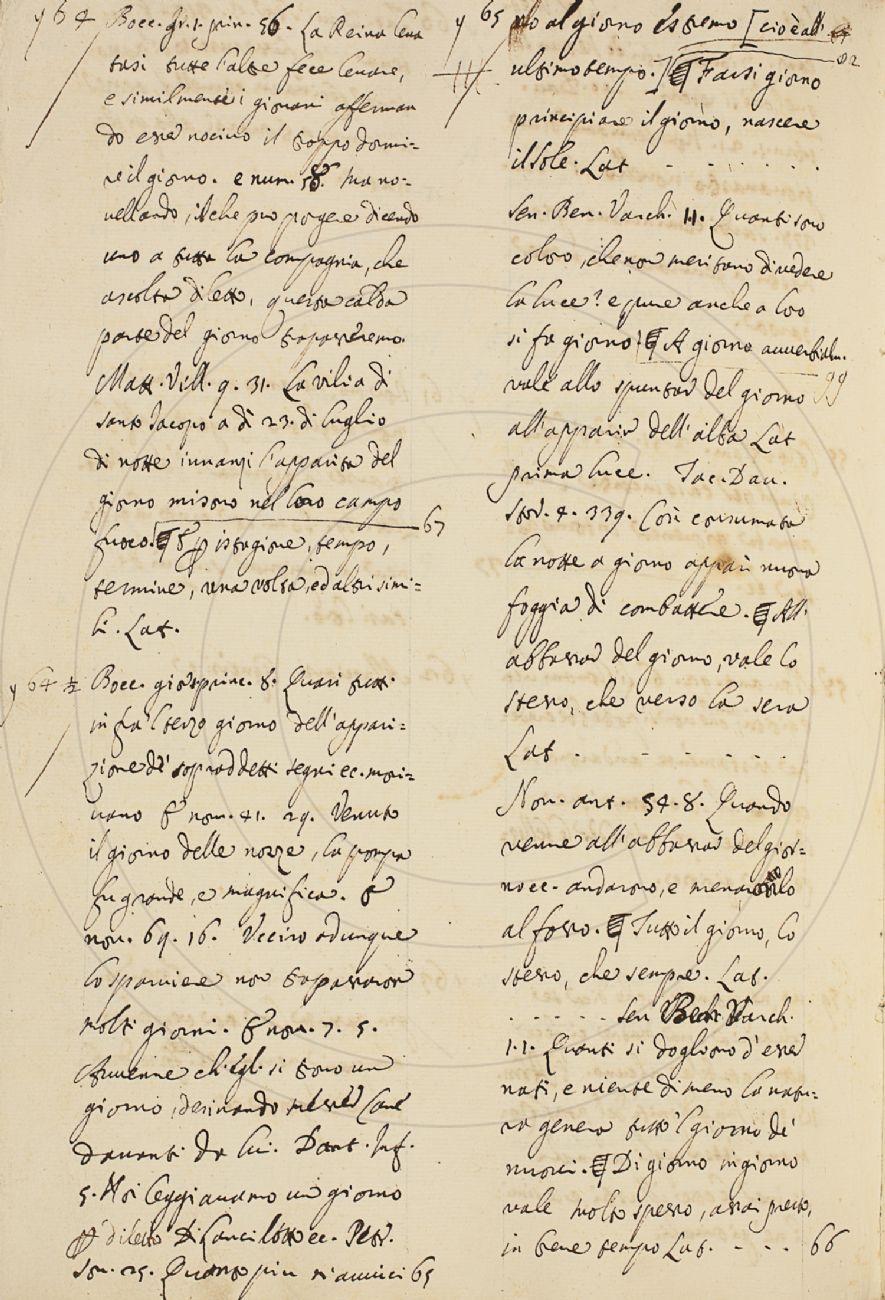 y 64 Bocc. gr. 1. prin. 56. La Reina leva
tasi tutte l'altre fece levare,
e similmente i giovani afferman
do esser nocivo il troppo dormi=
re il giorno. e num. 58. Ma no=
vellando, il che può porgere dicendo
uno a tutta la compagnia, che
ascolta diletto, questa calda
parte del giorno trapasseremo.
Matt. Vill. 9. 31. La vilia di
santo Jacopo a dì 23. di luglio
di notte innanzi l'apparita del
giorno misono nel loro campo
fuoco. ¶ & p istagione, tempo, 67
termine, una volta, ed altri simi=
li. Lat.
y 64 ½ Bocc. princ. 8. Quasi tutti
infra 'l terzo giorno dell'appari=
zione de' sopraddetti segni ec. mori=
vano & nov. 41. 29. Venuto
il giorno delle nozze, la pompa
fu grande, e magnifica. &
nov. 69. 16. Ucciso adunque
lo sparviere non trapassaron
molti giorni. & nov. 7. 5.
Avvenne ch'egli si trovò un
giorno, desinando messer Cane
davanti da lui. Dant. Inf.
5. Noi leggiavamo un giorno
p diletto Di Lancilotto ec. Petr.
Son. 25. Quanto più m'avvici 65
y 65 no al giorno estremo [cioè all'
ultimo tempo.] ¶ Farsi giorno 82
principiare il giorno, nascere
il sole. Lat - - - - - -
Sen. Ben. Varch. 1.1. Quanti sono
coloro, che non meritano di vedere
la luce? e pure anche a loro
si fa giorno. ¶ A giorno avverbialm.
vale allo spuntar del giorno 99
all'apparir dell'alba Lat
prima luce. Tac. Dav.
Stor. 4. 339. Così consumata
la notte a giorno apparì nuova
foggia di combattere. ¶ All'
abbassar del giorno, vale lo
stesso, che verso la sera
Lat - - - - - -
Nov. ant. 54. 8. Quando
venne all'abbassar del gior=
no ec. andarono, e menaronlo
al fosso. ¶ Tutto il giorno, lo
stesso, che sempre. Lat.
- - - - - Sen Ben Varch.
1.1. Quanti si dogliono d'esser
nati, e niente di meno la natu=
ra genera tutto 'l giorno de'
nuovi. ¶ Di giorno in giorno
vale molto spesso, assai presto,
in breve tempo Lat. - - - 66